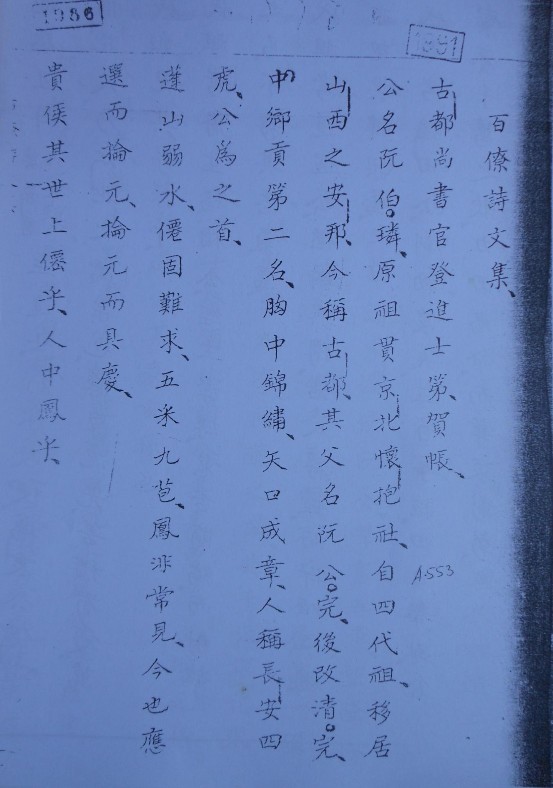 1986
1991
百僚詩文集、
古都尚書官登進士第、賀帳、
公名阮伯璘、原祖貫京北懷抱社、自四代祖、移居
山西之安邦、今稱古都、其父名阮公完、後改清完、
中鄉貢第二名、胸中錦繡、矢口成章、人稱長安四
虎、公為之首、
蓬山弱水、僊固難求、五采九苞、鳳非常見、今也應
選而掄元、掄元而具慶、
貴侯其世上僊乎、人中鳳乎、
A.553